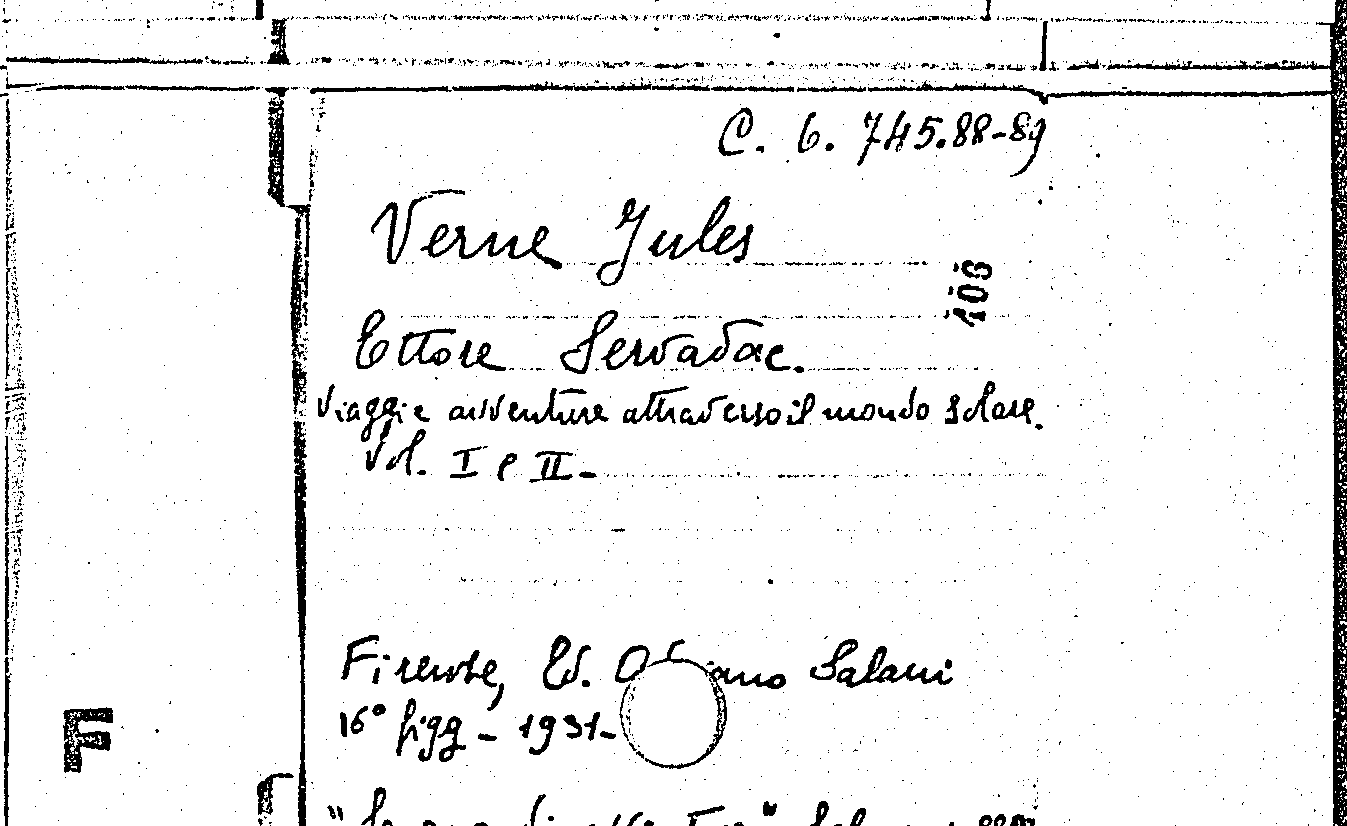 C. 6. 745.88-89
Verne Jules
108
Ettore Servadac.
Viaggi e avventure attraverso il mondo Solare.
Vol. I e II-
Firenze, Ed. ano Salani
16° figg - 1931-
F